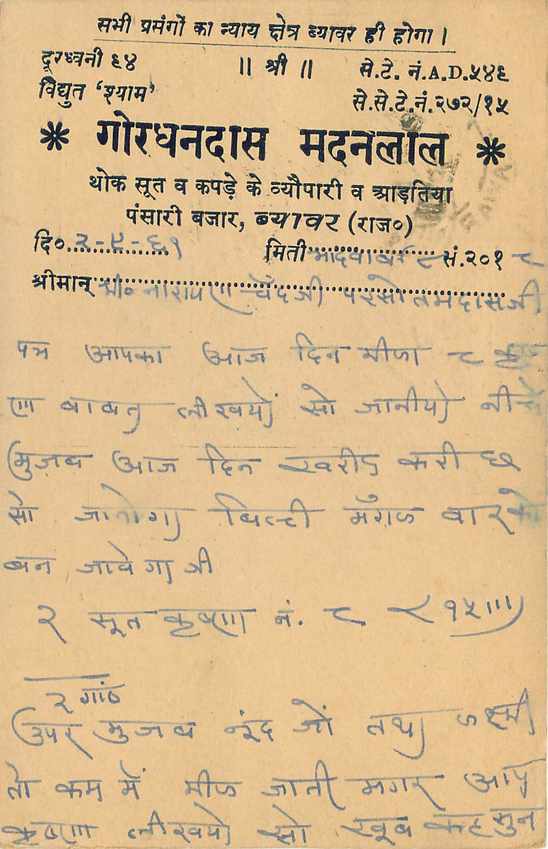 सभी प्रसंगों का न्याय क्षेत्र ब्यावर ही होगा।
दूरध्वनी ६४ ॥ श्री ॥ से.टे. नं.A.D.५४६
विद्युत 'श्याम' से.से.टे.नं.२७२/१५
* गोरधनदास मदनलाल *
थोक सूत व कपड़े के व्यौपारी व आड़तिया
पंसारी बजार, ब्यावर (राज०)
दि० २-९-६१ मिती भादवा बदी ८ सं.२०१८
श्रीमान् भा० नारायण चंदजी परसोतमदासजी
पत्र आपका आज दिन मीला ८ कृष्
णा बाबत लीखयो सो जानीयो नीचे
मुजब आज दिन खरीद करी छे
सो जानोगा बिल्टी मंगल वार को
बन जावेगा जी
२ सूत कृष्णा नं. ८ १५॥)
२ गांठ
उपर मुजब नंद जी तथा लक्ष्मी
तो कम में मील जाती मगर आप
कृष्णा लीखयो सो खूब कह सुन